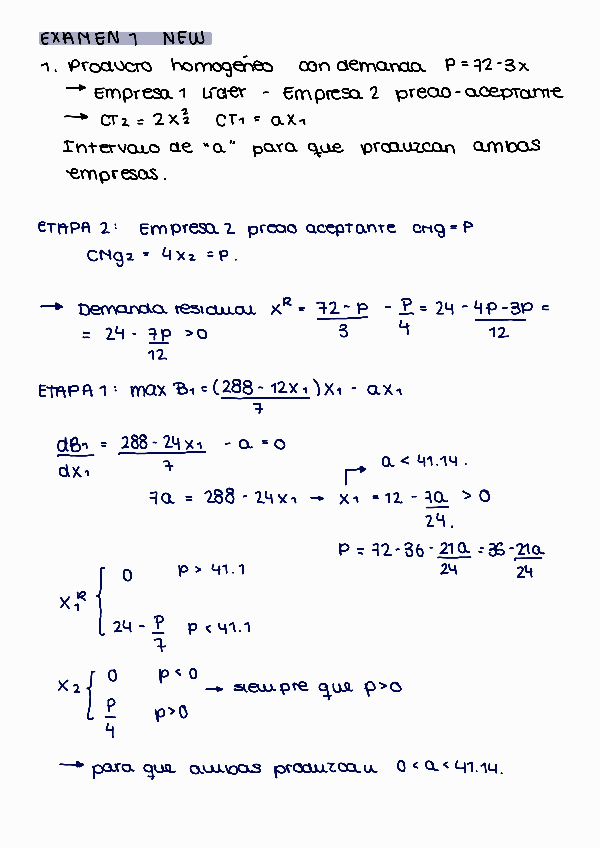 EXAMEN 1 NEW
1. Producto homogéneo con demanda P = 72 - 3x
→ Empresa 1 líder - Empresa 2 precio-aceptante
→ CT₂ = 2x₂² CT₁ = ax₁
Intervalo de "a" para que produzcan ambas
empresas.
ETAPA 2: Empresa 2 precio aceptante CMg = P
CMg₂ = 4x₂ = P.
→ Demanda residual xᴿ = (72 - P)/3 - P/4 = 24 - (4P - 3P)/12 =
= 24 - 7P/12 > 0
ETAPA 1: max B₁ = ((288 - 12x₁)/7)x₁ - ax₁
dB₁/dx₁ = (288 - 24x₁)/7 - a = 0
→ a < 41.14.
7a = 288 - 24x₁ → x₁ = 12 - 7a/24. > 0
P = 72 - 36 - 21a/24 = 36 - 21a/24
x₁ᴿ { 0 P > 41.1
24 - P/7 P < 41.1
x₂ { 0 P < 0 → siempre que p>0
P/4 p>0
→ para que ambas produzcan 0 < a < 41.14.